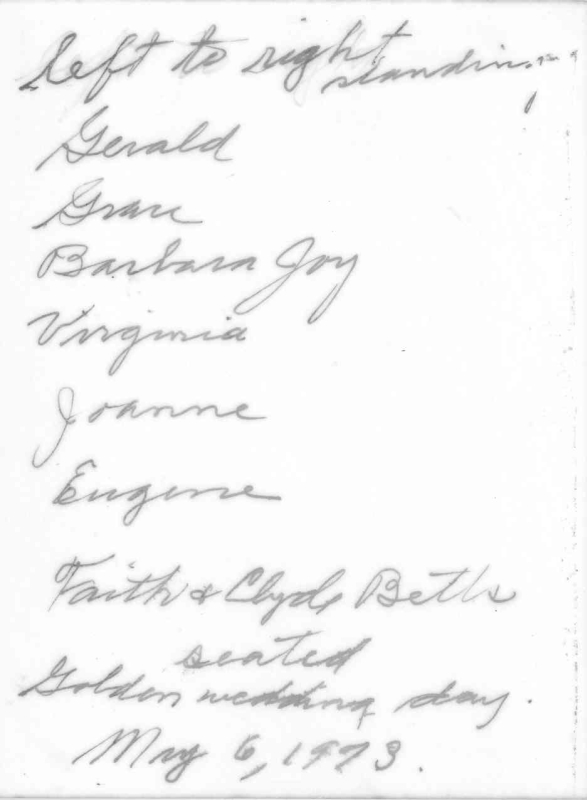 left to right
standing
Gerald
Grace
Barbara Joy
Virginia
Joanne
Eugene
Faith & Clyde Betts
seated
Golden wedding day.
May 6, 1973.